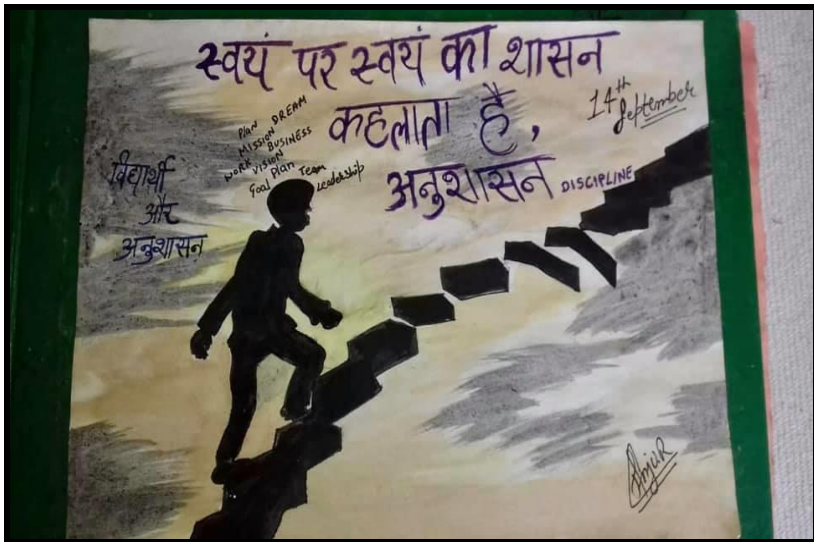 स्वयं पर स्वयं का शासन
कहलाता है,
अनुशासन DISCIPLINE
14th September
PLAN DREAM
MISSION BUSINESS
WORK VISION
Goal Plan Team
Leadership
विद्यार्थी
और
अनुशासन